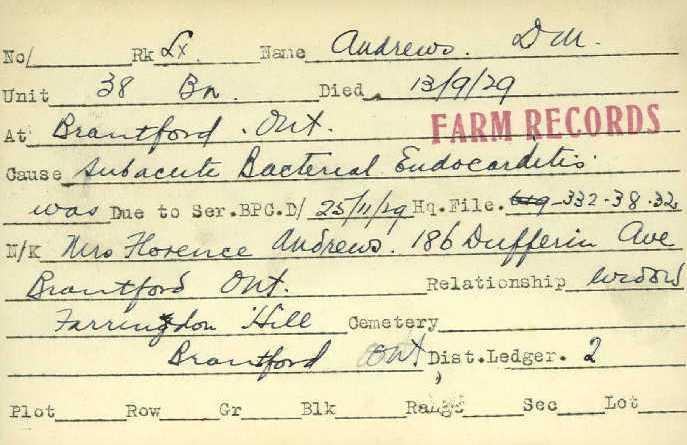 No/ Rk Lx. Name Andrews. D M.
Unit 38 Bn. Died 13/9/29
At Brantford. Ont. FARM RECORDS
Cause subacute Bacterial Endocarditis.
was Due to Ser.BPC.D/ 25/11/29 Hq.File. 649-332-38-32
N/K Mrs Florence Andrews. 186 Dufferin Ave
Brantford Ont. Relationship widow
Farringdon Hill Cemetery
Brantford Ont Dist.Ledger. 2
Plot Row Gr Blk Range Sec Lot